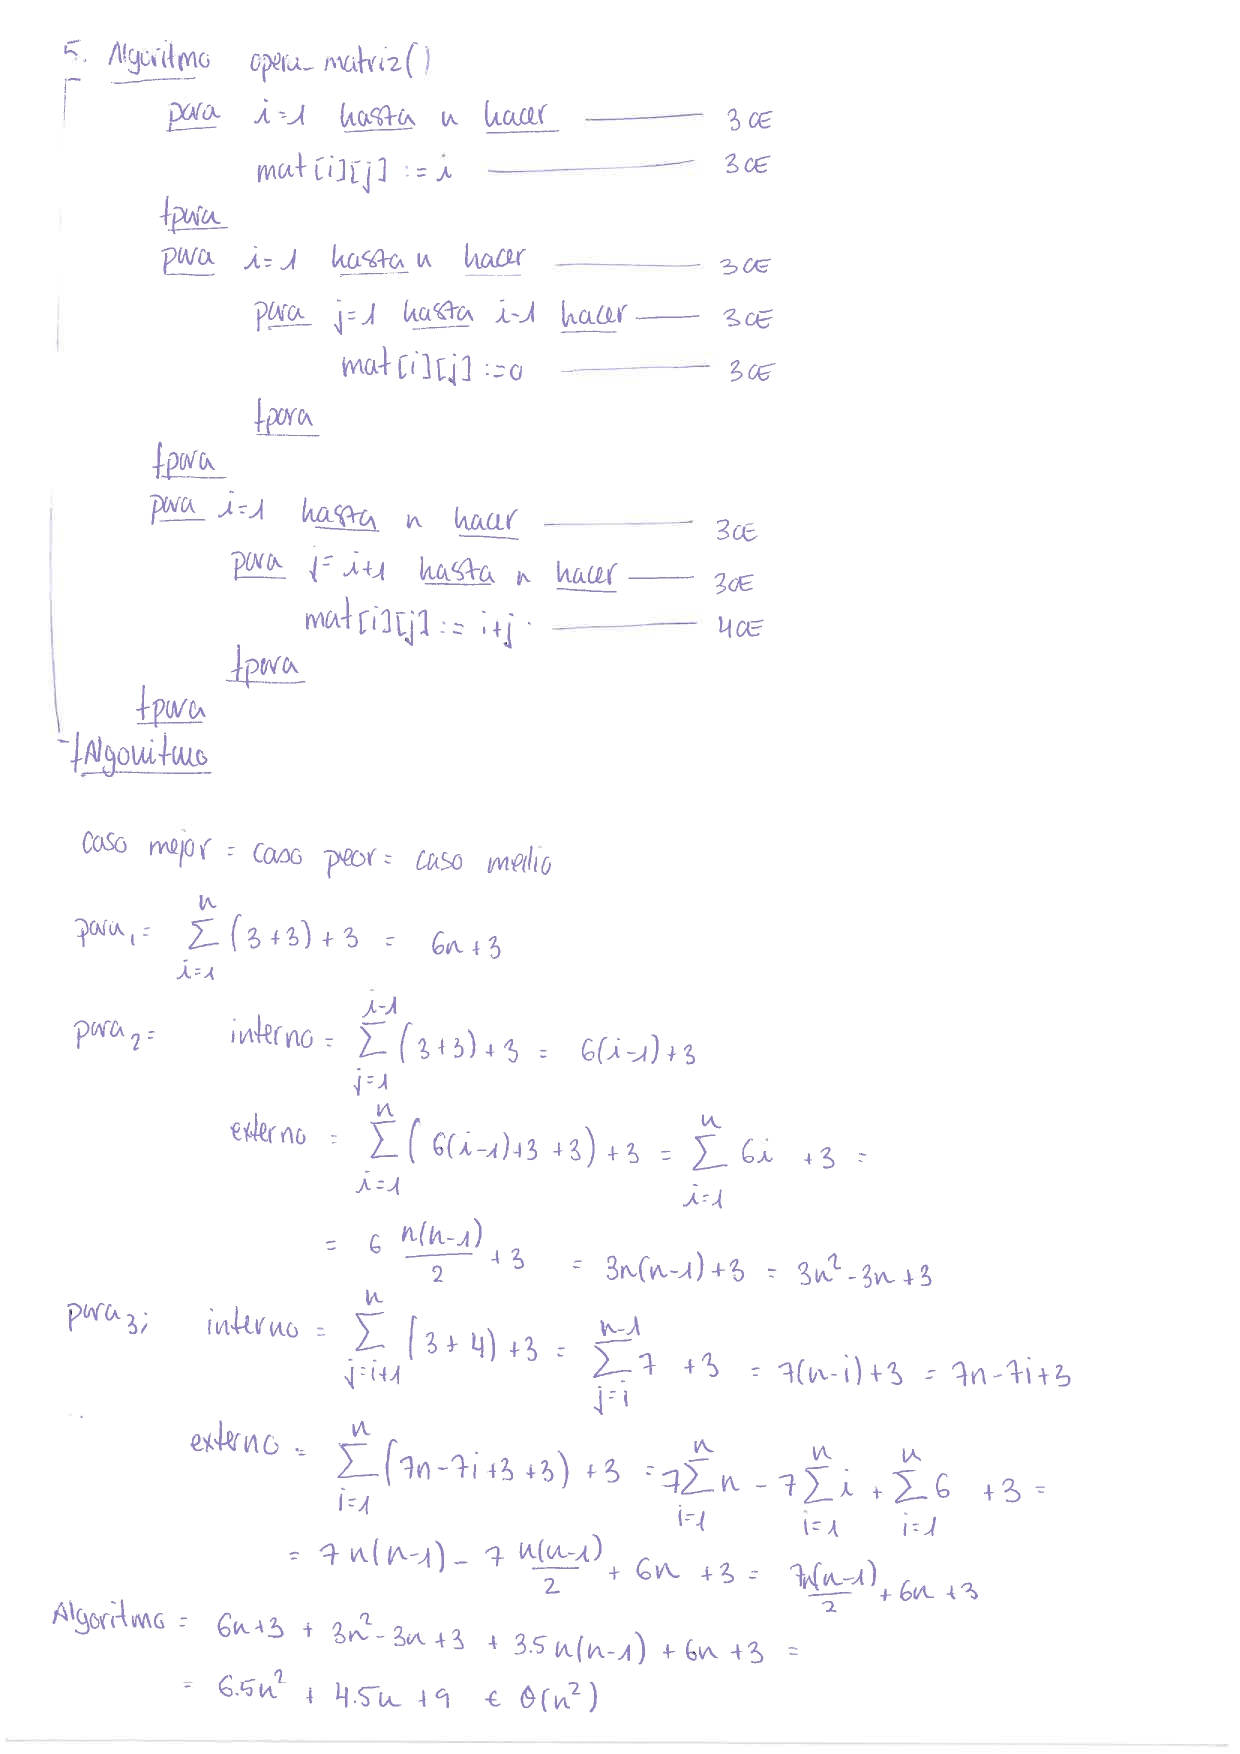 5. Algoritmo opera_matriz()
para i=1 hasta n hacer —— 3 OE
mat[i][j] := i —— 3 OE
fpara
para i=1 hasta n hacer —— 3 OE
para j=1 hasta i-1 hacer —— 3 OE
mat[i][j] := 0 —— 3 OE
fpara
fpara
para i=1 hasta n hacer —— 3 OE
para j=i+1 hasta n hacer —— 3 OE
mat[i][j] := i+j —— 4 OE
fpara
fpara
fAlgoritmo
caso mejor = caso peor = caso medio
para₁ = ∑_{i=1}^{n} (3+3)+3 = 6n+3
para₂ = interno = ∑_{j=1}^{i-1} (3+3)+3 = 6(i-1)+3
externo = ∑_{i=1}^{n} (6(i-1)+3+3)+3 = ∑_{i=1}^{n} 6i +3 =
= 6 n(n-1)/2 +3 = 3n(n-1)+3 = 3n²-3n+3
para₃; interno = ∑_{j=i+1}^{n} (3+4)+3 = ∑_{j=i}^{n-1} 7 +3 = 7(n-i)+3 = 7n-7i+3
externo = ∑_{i=1}^{n} (7n-7i+3+3)+3 = 7∑_{i=1}^{n} n - 7∑_{i=1}^{n} i + ∑_{i=1}^{n} 6 +3 =
= 7n(n-1) - 7 n(n-1)/2 + 6n +3 = 7n(n-1)/2 + 6n +3
Algoritmo = 6n+3 + 3n²-3n+3 + 3.5n(n-1) + 6n +3 =
= 6.5n² + 4.5n + 9 ∈ Θ(n²)